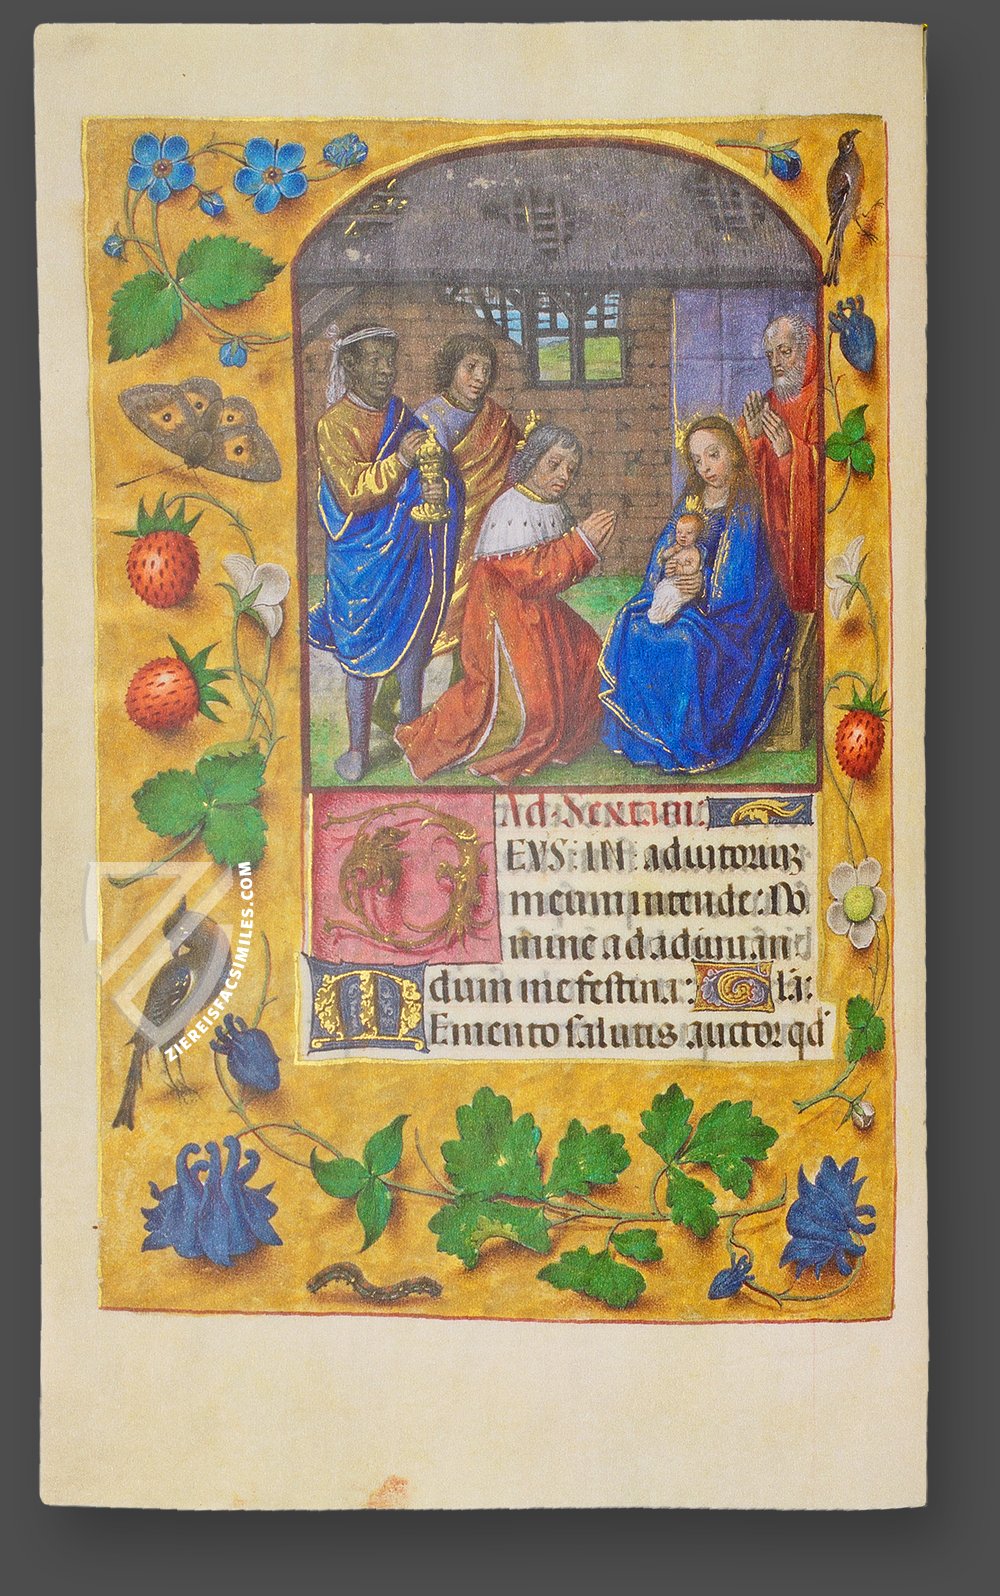 Ad. Sextam:
DEVS: IN adiutoriuʒ
meum intende: Do
mine ad adiuuan
dum me festina: Gl'a:
Memento salutis auctor qd'
ZIEREISFACSIMILES.COM